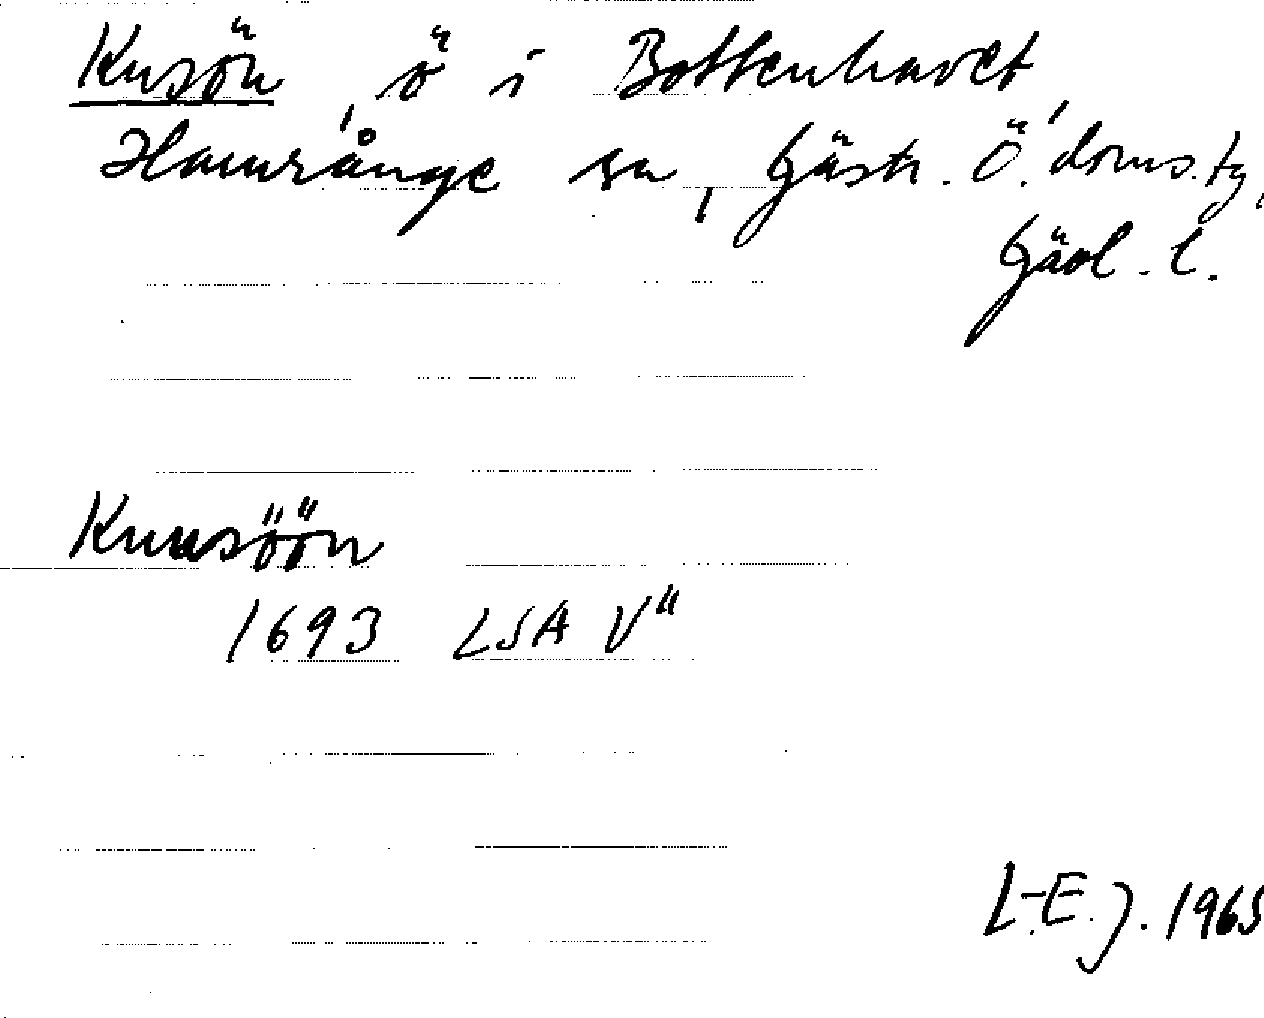 Kusön, ö i Bottenhavet,
Hamrånge sn, Gästr. Ö. doms. tg,
Gävl. l.
Kuusöön
1693 LSA V¹¹
L-E. J. 1965